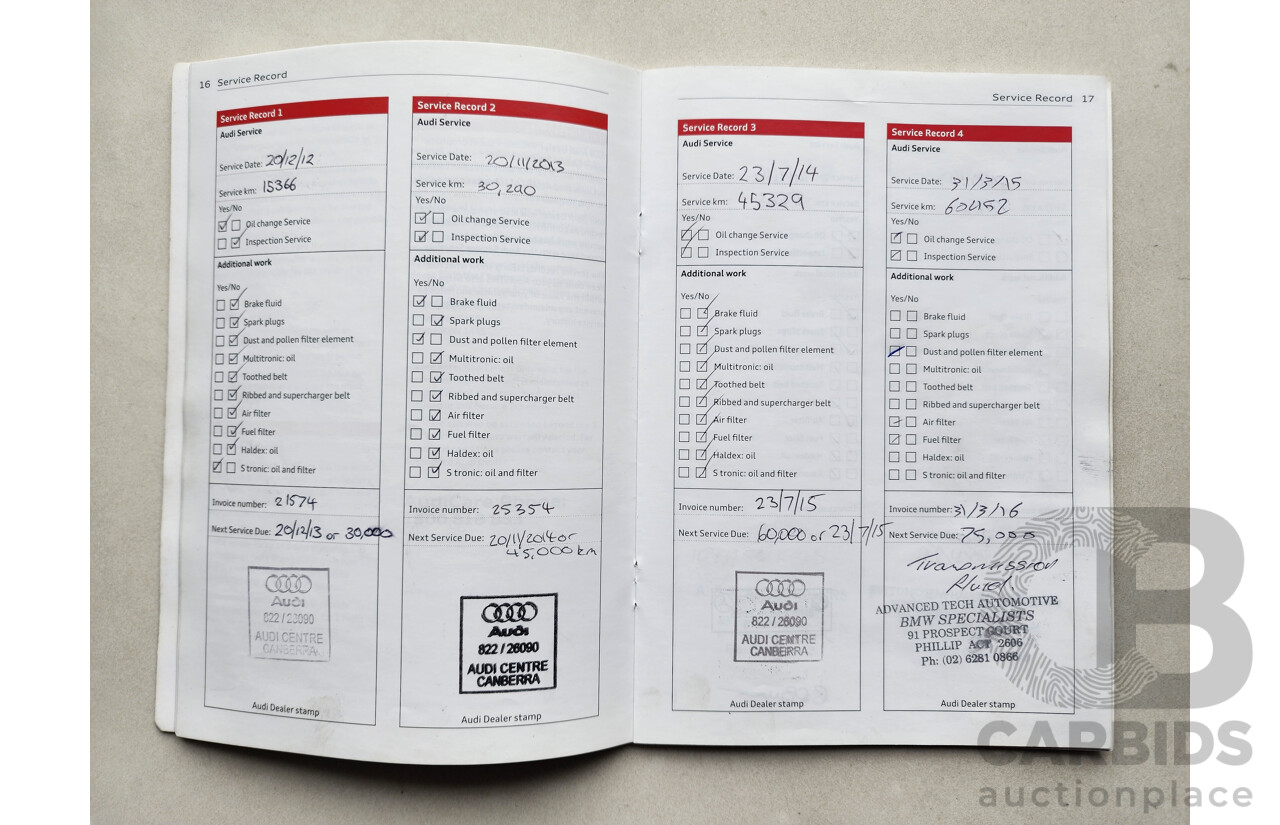 16 Service Record
Service Record 1
Audi Service
Service Date: 20/12/12
Service km: 15366
Yes/No
Oil change Service
Inspection Service
Additional work
Yes/No
Brake fluid
Spark plugs
Dust and pollen filter element
Multitronic: oil
Toothed belt
Ribbed and supercharger belt
Air filter
Fuel filter
Haldex: oil
S tronic: oil and filter
Invoice number: 21574
Next Service Due: 20/12/13 or 30,000
Audi
AUDI CENTRE
CANBERRA
Audi Dealer stamp
Service Record 2
Audi Service
Service Date: 20/11/2013
Service km: 30,290
Yes/No
Oil change Service
Inspection Service
Additional work
Yes/No
Brake fluid
Spark plugs
Dust and pollen filter element
Multitronic: oil
Toothed belt
Ribbed and supercharger belt
Air filter
Fuel filter
Haldex: oil
S tronic: oil and filter
Invoice number: 25354
Next Service Due: 20/11/2014 or
45,000 km
Audi
822 / 26090
AUDI CENTRE
CANBERRA
Audi Dealer stamp
Service Record 17
Service Record 3
Audi Service
Service Date: 23/7/14
Service km: 45329
Yes/No
Oil change Service
Inspection Service
Additional work
Yes/No
Brake fluid
Spark plugs
Dust and pollen filter element
Multitronic: oil
Toothed belt
Ribbed and supercharger belt
Air filter
Fuel filter
Haldex: oil
S tronic: oil and filter
Invoice number: 23/7/15
Next Service Due: 60,000 or 23/7/15
Audi
822 / 26090
AUDI CENTRE
CANBERRA
Audi Dealer stamp
Service Record 4
Audi Service
Service Date: 31/3/15
Service km:
Yes/No
Oil change Service
Inspection Service
Additional work
Yes/No
Brake fluid
Spark plugs
Dust and pollen filter element
Multitronic: oil
Toothed belt
Ribbed and supercharger belt
Air filter
Fuel filter
Haldex: oil
S tronic: oil and filter
Invoice number: 31/3/16
Next Service Due: 75,000
Transmission
ADVANCED TECH AUTOMOTIVE
BMW SPECIALISTS
91 PROSPECT COURT
PHILLIP ACT 2606
Ph: (02) 6281 0866
Audi Dealer stamp
CARBIDS
auctionplace